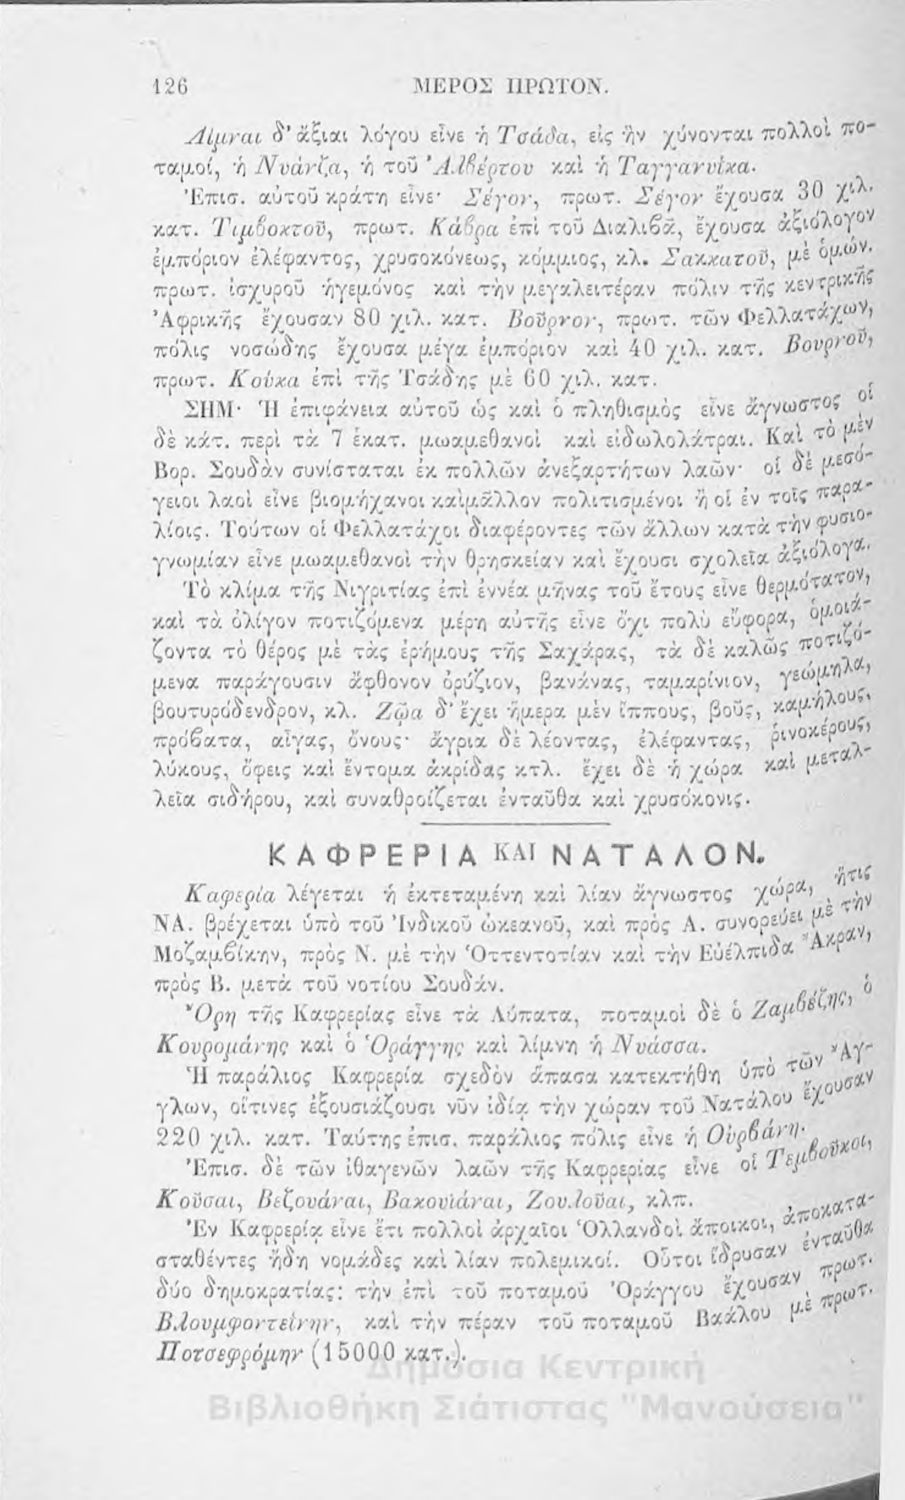 126 ΜΕΡΟΣ ΠΡΩΤΟΝ.
Λίμναι δ’ ἄξιαι λόγου εἶνε ἡ Τσάδα, εἰς ἣν χύνονται πολλοὶ πο-
ταμοί, ἡ Νυάνζα, ἡ τοῦ Ἀλβέρτου καὶ ἡ Ταγγανυίκα.
Ἐπισ. αὐτοῦ κράτη εἶνε· Σέγον, πρωτ. Σέγον ἔχουσα 30 χιλ.
κατ. Τιμβοκτοῦ, πρωτ. Κάβρα ἐπὶ τοῦ Διαλιβᾶ, ἔχουσα ἀξιόλογον
ἐμπόριον ἐλέφαντος, χρυσοκόνεως, κόμμιος, κλ. Σακκατοῦ, μὲ ὁμών.
πρωτ. ἰσχυροῦ ἡγεμόνος καὶ τὴν μεγαλειτέραν πόλιν τῆς κεντρικῆς
Ἀφρικῆς ἔχουσαν 80 χιλ. κατ. Βοῦρνον, πρωτ. τῶν Φελλατάχων,
πόλις νοσώδης ἔχουσα μέγα ἐμπόριον καὶ 40 χιλ. κατ. Βουρνοῦ,
πρωτ. Κούκα ἐπὶ τῆς Τσάδης μὲ 60 χιλ. κατ.
ΣΗΜ· Ἡ ἐπιφάνεια αὐτοῦ ὡς καὶ ὁ πληθισμὸς εἶνε ἄγνωστος οἱ
δὲ κάτ. περὶ τὰ 7 ἑκατ. μωαμεθανοὶ καὶ εἰδωλολάτραι. Καὶ τὸ μὲν
Βορ. Σουδὰν συνίσταται ἐκ πολλῶν ἀνεξαρτήτων λαῶν· οἱ δὲ μεσό-
γειοι λαοὶ εἶνε βιομήχανοι καὶμᾶλλον πολιτισμένοι ἢ οἱ ἐν τοῖς παρα-
λίοις. Τούτων οἱ Φελλατάχοι διαφέροντες τῶν ἄλλων κατὰ τὴν φυσιο-
γνωμίαν εἶνε μωαμεθανοὶ τὴν θρησκείαν καὶ ἔχουσι σχολεῖα ἀξιόλογα.
Τὸ κλίμα τῆς Νιγριτίας ἐπὶ ἐννέα μῆνας τοῦ ἔτους εἶνε θερμότατον,
καὶ τὰ ὀλίγον ποτιζόμενα μέρη αὐτῆς εἶνε ὄχι πολὺ εὔφορα, ὁμοιά-
ζοντα τὸ θέρος μὲ τὰς ἐρήμους τῆς Σαχάρας, τὰ δὲ καλῶς ποτιζό-
μενα παράγουσιν ἄφθονον ὀρύζιον, βανάνας, ταμαρίνιον, γεώμηλα,
βουτυρόδενδρον, κλ. Ζῷα δ’ ἔχει ἥμερα μὲν ἵππους, βοῦς, καμήλους,
πρόβατα, αἶγας, ὄνους· ἄγρια δὲ λέοντας, ἐλέφαντας, ῥινοκέρους,
λύκους, ὄφεις καὶ ἔντομα ἀκρίδας κτλ. ἔχει δὲ ἡ χώρα καὶ μεταλ-
λεῖα σιδήρου, καὶ συναθροίζεται ἐνταῦθα καὶ χρυσόκονις.
ΚΑΦΡΕΡΙΑ ΚΑΙ ΝΑΤΑΛΟΝ.
Καφερία λέγεται ἡ ἐκτεταμένη καὶ λίαν ἄγνωστος χώρα, ἥτις
ΝΑ. βρέχεται ὑπὸ τοῦ Ἰνδικοῦ ὠκεανοῦ, καὶ πρὸς Α. συνορεύει μὲ τὴν
Μοζαμβίκην, πρὸς Ν. μὲ τὴν Ὁττεντοτίαν καὶ τὴν Εὐέλπιδα Ἄκραν,
πρὸς Β. μετὰ τοῦ νοτίου Σουδάν.
Ὄρη τῆς Καφρερίας εἶνε τὰ Λύπατα, ποταμοὶ δὲ ὁ Ζαμβέζης, ὁ
Κουρομάνης καὶ ὁ Ὀράγγης καὶ λίμνη ἡ Νυάσσα.
Ἡ παράλιος Καφρερία σχεδὸν ἅπασα κατεκτήθη ὑπὸ τῶν Ἄγ-
γλων, οἵτινες ἐξουσιάζουσι νῦν ἰδίᾳ τὴν χώραν τοῦ Νατάλου ἔχουσαν
220 χιλ. κατ. Ταύτης ἐπισ. παράλιος πόλις εἶνε ἡ Οὐρβάνη.
Ἐπισ. δὲ τῶν ἰθαγενῶν λαῶν τῆς Καφρερίας εἶνε οἱ Τεμβοῦκοι,
Κοῦσαι, Βεζουάναι, Βακουιάναι, Ζουλοῦαι, κλπ.
Ἐν Καφρερίᾳ εἶνε ἔτι πολλοὶ ἀρχαῖοι Ὁλλανδοὶ ἄποικοι, ἀποκατα-
σταθέντες ἤδη νομάδες καὶ λίαν πολεμικοί. Οὗτοι ἵδρυσαν ἐνταῦθα
δύο δημοκρατίας: τὴν ἐπὶ τοῦ ποταμοῦ Ὀράγγου ἔχουσαν πρωτ.
Βλουμφοντεῖνην, καὶ τὴν πέραν τοῦ ποταμοῦ Βαάλου μὲ πρωτ.
Ποτσεφρόμην (15000 κατ.).
Δημόσια Κεντρική
Βιβλιοθήκη Σιάτιστας "Μανούσεια"